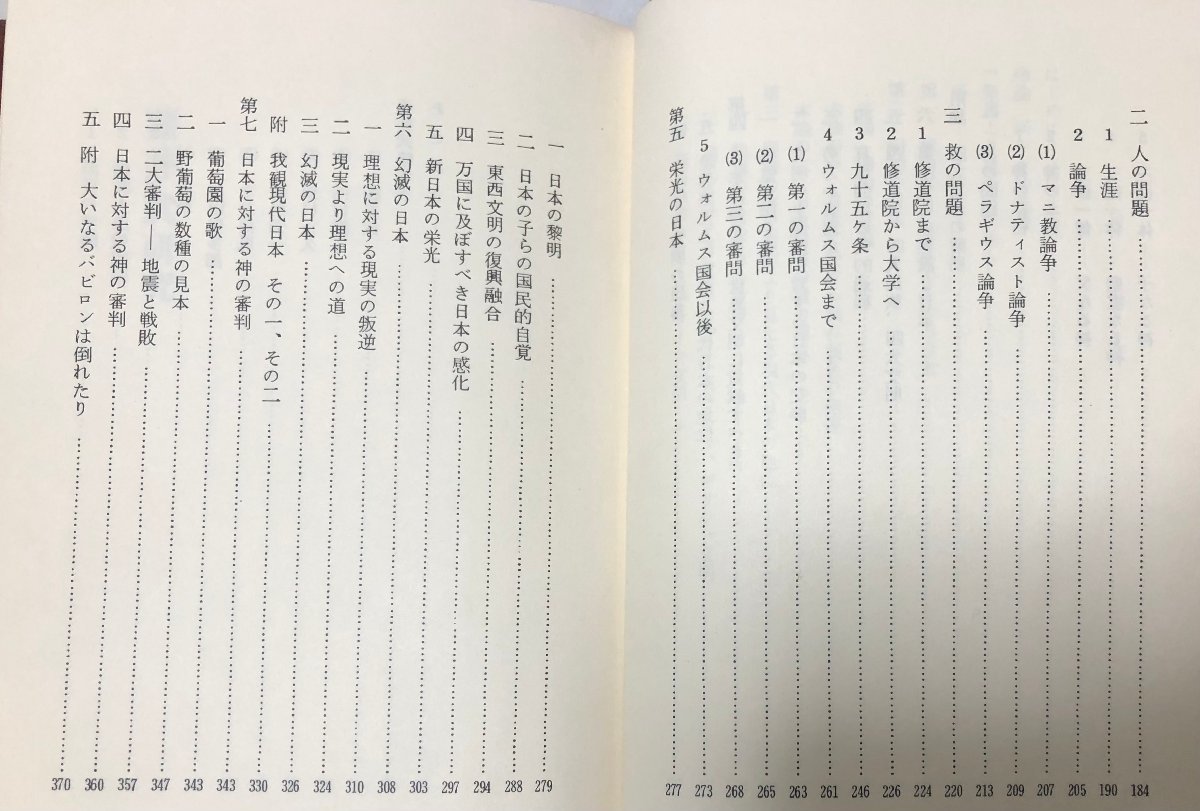 二 人の問題……184
1 生涯……190
2 論争……205
(1) マニ教論争……207
(2) ドナティスト論争……209
(3) ペラギウス論争……213
三 救の問題……220
1 修道院まで……224
2 修道院から大学へ……226
3 九十五ケ条……246
4 ウォルムス国会まで……261
(1) 第一の審問……263
(2) 第二の審問……265
(3) 第三の審問……268
5 ウォルムス国会以後……273
第五 栄光の日本……277
一 日本の黎明……279
二 日本の子らの国民的自覚……288
三 東西文明の復興融合……294
四 万国に及ぼすべき日本の感化……297
五 新日本の栄光……303
第六 幻滅の日本……308
一 理想に対する現実の叛逆……310
二 現実より理想への道……324
三 幻滅の日本……326
附 我観現代日本 その一、その二……330
第七 日本に対する神の審判……343
一 葡萄園の歌……343
二 野葡萄の数種の見本……347
三 二大審判―地震と戦敗……357
四 日本に対する神の審判……360
五 附 大いなるバビロンは倒れたり……370